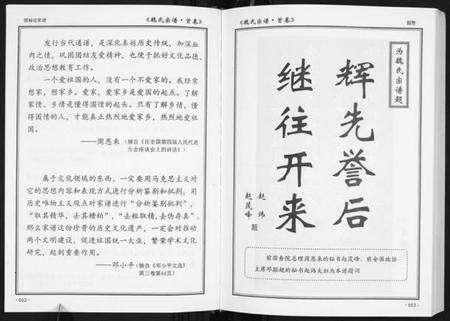 《魏氏宗谱·首卷》
发行当代通谱,是深化本姓历史传统,加深血
内之情,巩固团结友爱精神,也便于抓好文化品德、
政治思想教育工作。
一个爱祖国的人,没有一个不爱家的。我经常
想家,想家乡。爱家、爱家乡是爱国的起点。了解
家情、乡情是懂得国情的起头。只有了解乡情,懂
得国情的人,才能真正热忱地爱家乡,热烈地爱祖
国。
——周恩来(摘自《在全国第四届人民代表
大会座谈会上的讲话》)
属于文化领域的东西,一定要用马克思主义对
它的思想内容和表现方式进行分析鉴别和批判,用
历史唯物主义观点对家谱进行“分析创批判”,
“取其精华,去其糟粕”,“去粗取精,去伪存真”,
那么家谱这份珍贵的历史文化遗产,一定会对推动
两个文明建设,促进祖国统一大业,繁荣学术文化研
究,起到重要作用。
——邓小平(摘自《邓小平文选》
第三卷第44页)
002
《魏氏宗谱·首卷》
题赞
为魏氏宗谱题
辉先誉后
继往开来
赵炜
赵茂峰 题
前国务院总理周恩来的秘书赵茂峰、前全国政协
主席邓颖超的秘书赵炜夫妇为本谱题词
003